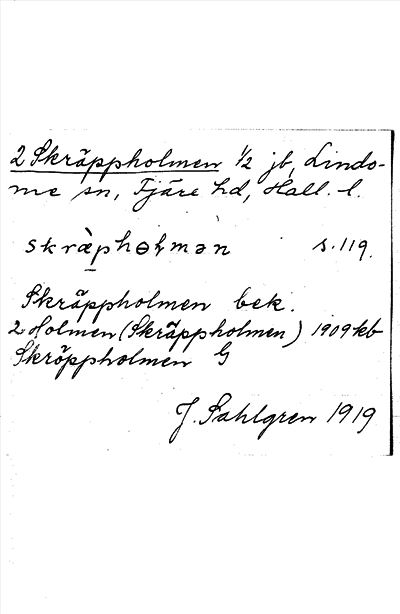 2 Skräppholmen 1/2 jb, Lindo-
me sn, Fjäre hd, Hall. l.
skræ̀phɵḷmən s. 119.
Skräppholmen bek.
2 Holmen (Skräppholmen) 1909 kb
Skröppholmen G
J. Sahlgren 1919